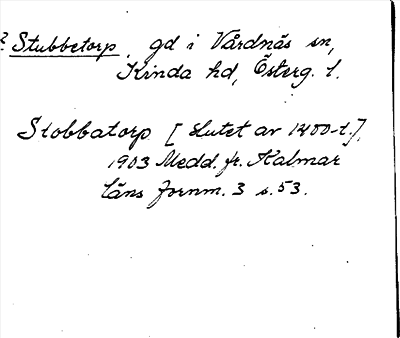 ? Stubbetorp, gd i Vårdnäs sn,
Kinda hd, Österg. l.
Stobbatorp [slutet av 1400-t.],
1903 Medd. fr. Kalmar
läns fornm. 3 s. 53.